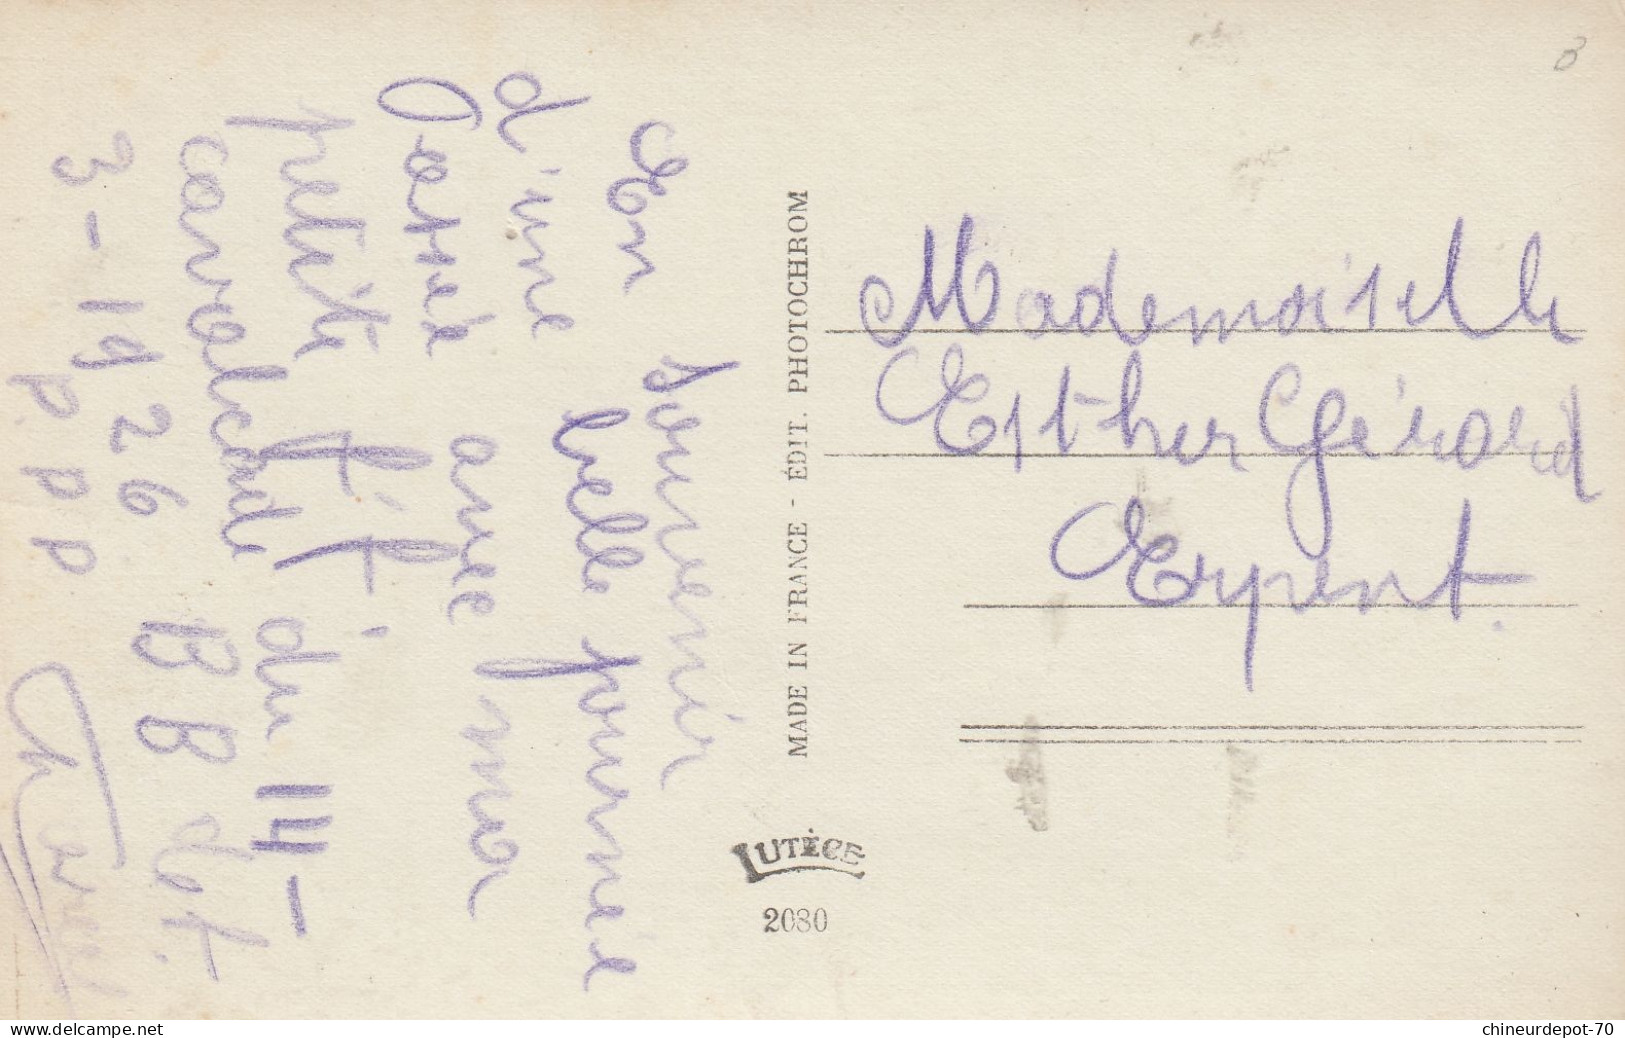 En souvenir
d'une belle journée
Passée avec ma
petite
cavalcade du 14-
3-1926 B B et
P P P
MADE IN FRANCE - ÉDIT. PHOTOCHROM
LUTÈCE
2080
Mademoiselle
Esther Gérard
Erpent.
B
chineurdepot-70